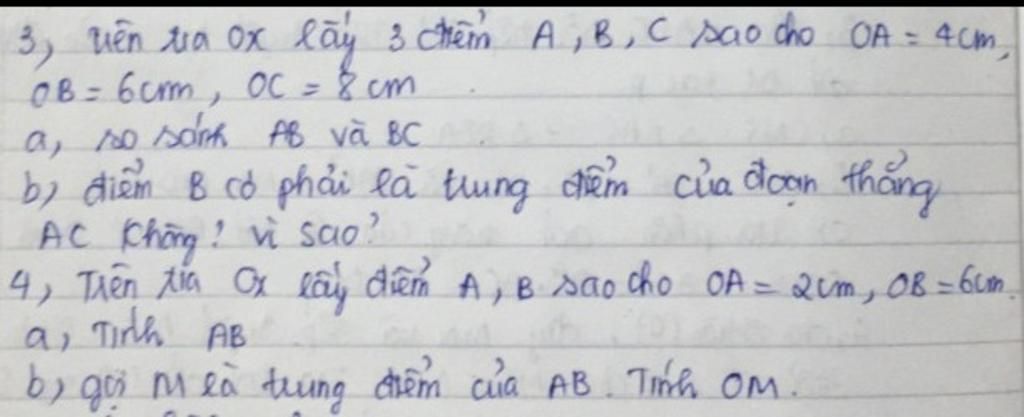 3, trên tia Ox lấy 3 điểm A, B, C sao cho OA = 4cm,
OB = 6cm, OC = 8cm
a, so sánh AB và BC
b, điểm B có phải là trung điểm của đoạn thẳng
AC không? vì sao?
4, Trên tia Ox lấy điểm A, B sao cho OA = 2cm, OB = 6cm.
a, Tính AB
b, gọi M là trung điểm của AB. Tính OM.